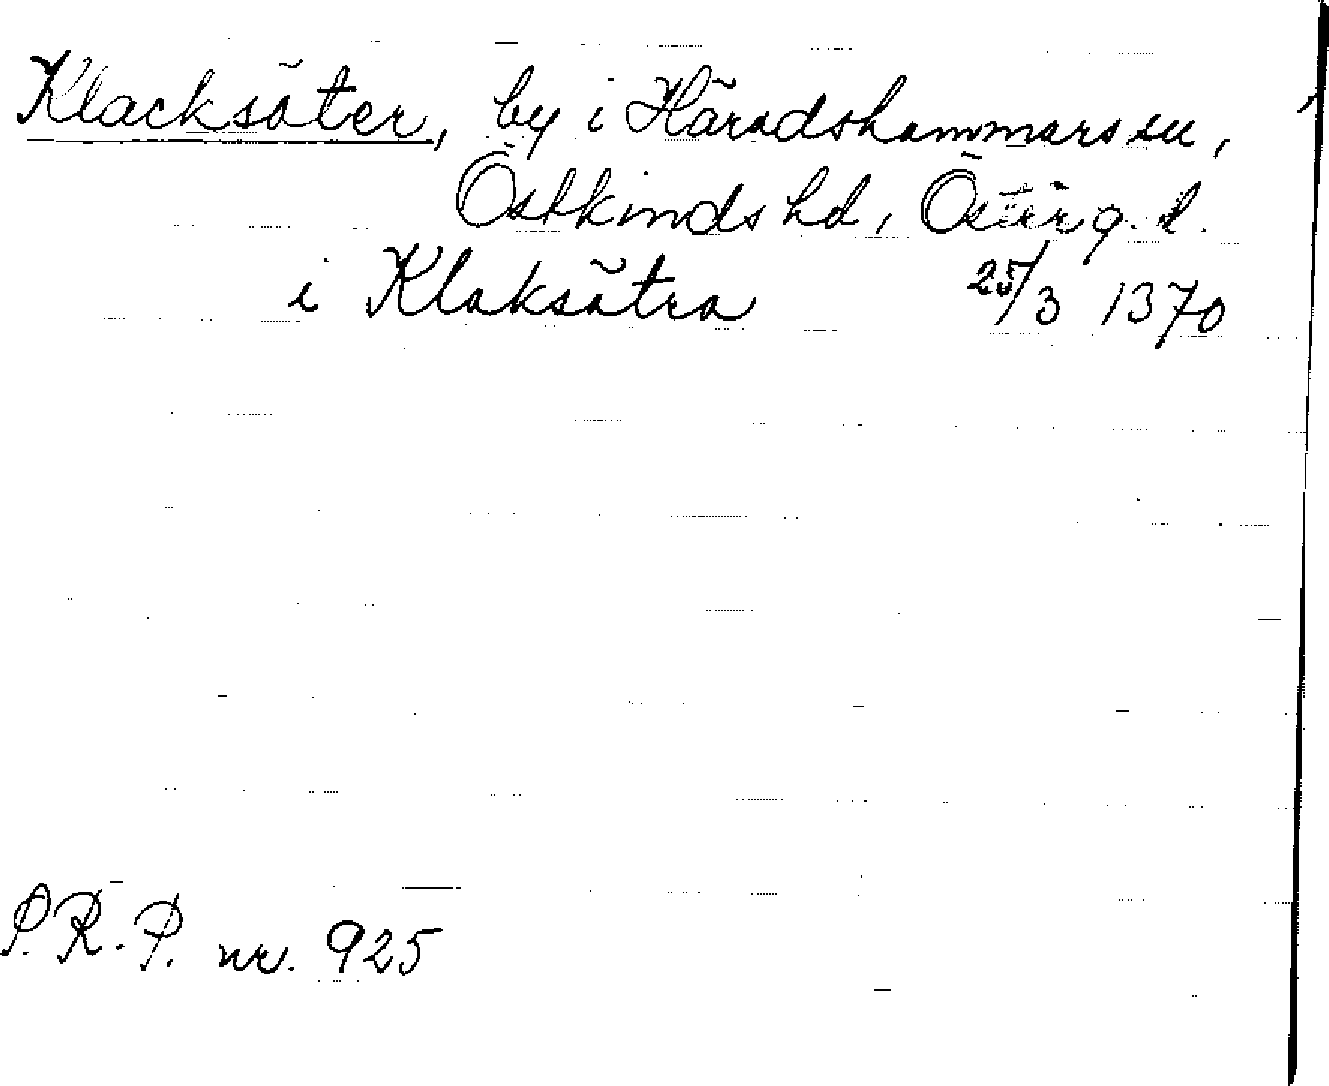 Klacksäter, by i Häradshammars sn,
Östkinds hd, Österg. l.
i Klaksätra 25/3 1370
P.R.P. nr. 925